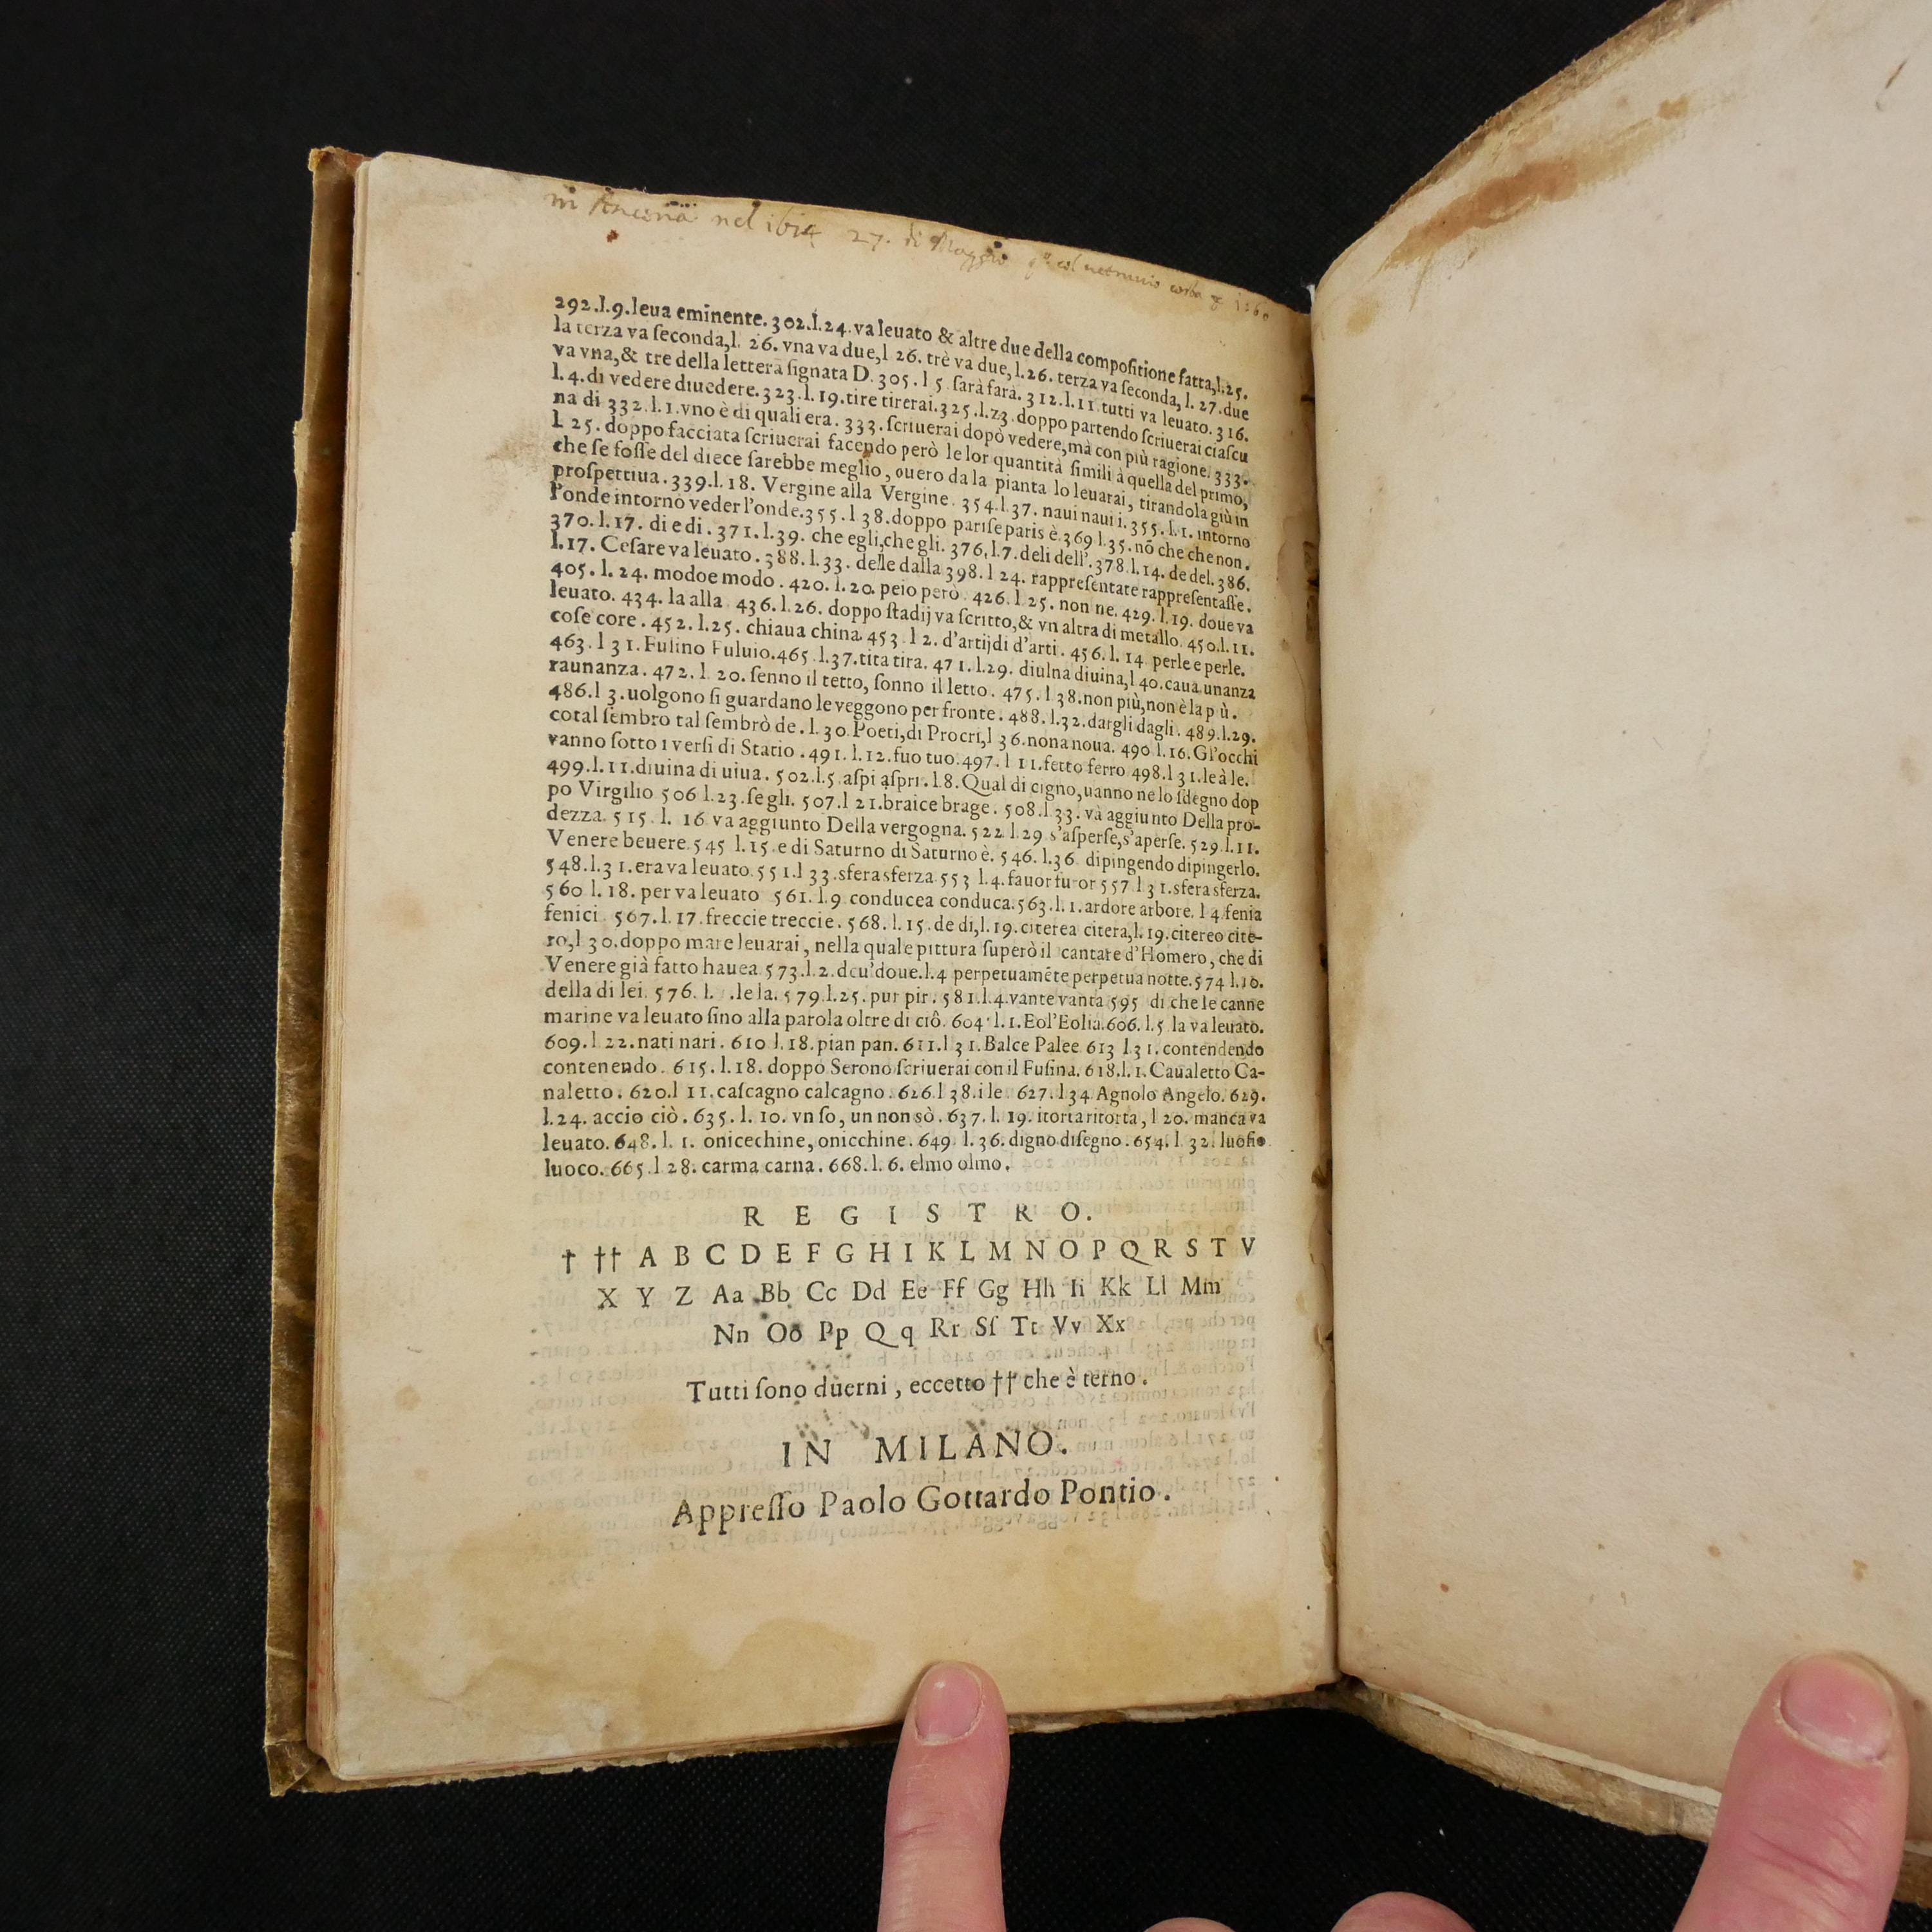 in Ancona nel 1614 27. di Maggio
292.l.9.leua eminente. 302.l.24. va leuato & altre due della compoſitione fatta,l.25.
la terza va ſeconda,l. 26. vna va due,l 26. trè va due, l.26. terza va ſeconda, l. 27. due
va vna, & tre della lettera ſignata D. 305. l 5. ſarà farà. 312.l.11. tutti va leuato. 316.
l.4. di vedere diuedere. 323.l.19.tire tirerai. 325.l.23. doppo partendo ſcriuerai ciaſcu
na di 332.l.1.vno è di quali era. 333. ſcriuerai dopò vedere,mà con più ragione. 333.
l 25. doppo facciata ſcriuerai facendo però le lor quantità ſimili à quella del primo,
che ſe foſſe del diece ſarebbe meglio, ouero da la pianta lo leuarai, tirandola giù in
proſpettiua. 339.l.18. Vergine alla Vergine. 354.l.37. naui naui i. 355. l.1. intorno
l'onde intorno veder l'onde.355.l 38.doppo pariſe paris è.369 l.35. nō che che non.
370.l.17. di e di. 371.l.39. che egli,che gli. 376,l.7. deli dell'.378.l.14. de del. 386.
l.17. Ceſare va leuato. 388.l.33. delle dalla 398.l 24. rappreſentate rappreſentaſſe.
405. l. 24. modoe modo. 420. l.20. peio però. 426. l 25. non ne. 429.l.19. doue va
leuato. 434. la alla 436.l.26. doppo ſtadij va ſcritto,& vn altra di metallo. 450.l.11.
coſe core. 452. l.25. chiaua china. 453 l 2. d'artijdi d'arti. 456. l. 14 perle e perle.
463. l 31. Fuſino Fuluio.465 l.37.tita tira. 471. l.29. diulna diuina,l 40.caua unanza
raunanza. 472. l 20. ſenno il tetto, ſonno il letto. 475. l 38.non più,non è la p ù.
486.l 3.uolgono ſi guardano le veggono per fronte. 488. l.32.dargli dagli. 489.l.29.
cotal ſembro tal ſembrò de. l. 30 Poeti,di Procri,l 36.nona noua. 490 l.16.Gl'occhi
vanno ſotto i verſi di Statio. 491. l. 12.ſuo tuo.497.l 11.fetto ferro 498.l 31.le à le.
499.l.11.diuina di uiua. 502.l.5 aſpi aſpri. l.8.Qual di cigno,uanno ne lo ſdegno dop
po Virgilio 506 l.23.ſe gli. 507.l 21.braice brage. 508.l 33. va aggiunto Della pro-
dezza. 515. l. 16 va aggiunto Della vergogna. 522 l.29 s'aſperſe,s'aperſe. 529.l.11.
Venere beuere. 545 l.15 e di Saturno di Saturno è. 546. l.36 dipingendo dipingerlo.
548.l.31.era va leuato. 551.l 33.sfera sferza 553 l.4.fauor fu-or 557 l 31.sfera sferza.
560 l.18. per va leuato 561. l.9 conducea conduca.563.l.1.ardore arbore. l 4 fenia
fenici. 567.l.17. freccie treccie. 568. l.15. de di,l.19.citerea citera,l.19.citereo cite-
ro,l 30.doppo mare leuarai, nella quale pittura ſuperò il cantare d'Homero, che di
Venere già fatto hauea 573.l.2.dcu'doue.l.4 perpetuamēte perpetua notte.574 l.10.
della di lei. 576. l. .le la. 579.l.25. pur pir. 581.l.4.vante vanta 595 di che le canne
marine va leuato ſino alla parola oltre di ciô. 604. l.1.Eol'Eolia.606. l.5 la va leuato.
609.l 22.nati nari. 610 l.18.pian pan. 611.l 31.Balce Palee 613 l.31. contendendo
contenendo. 615. l.18. doppo Serono ſcriuerai con il Fuſina. 618.l.1.Caualetto Ca-
naletto. 620.l 11.caſcagno calcagno. 626 l 38.i le 627. l 34 Agnolo Angelo. 629.
l.24. accio ciò. 635. l. 10. vn ſo, un non sò. 637. l. 19. itorta ritorta, l 20. manca va
leuato. 648. l. 1. onicechine, onicchine. 649 l.36. digno diſegno. 654. l 32. luoſio
luoco. 665.l 28. carma carna. 668.l.6. elmo olmo.
REGISTRO.
† †† A B C D E F G H I K L M N O P Q R S T V
X Y Z Aa Bb Cc Dd Ee Ff Gg Hh Ii Kk Ll Mm
Nn Oo Pp Q q Rr Sſ Tt Vv Xx
Tutti ſono duerni, eccetto †† che è terno.
IN MILANO.
Appreſſo Paolo Gottardo Pontio.